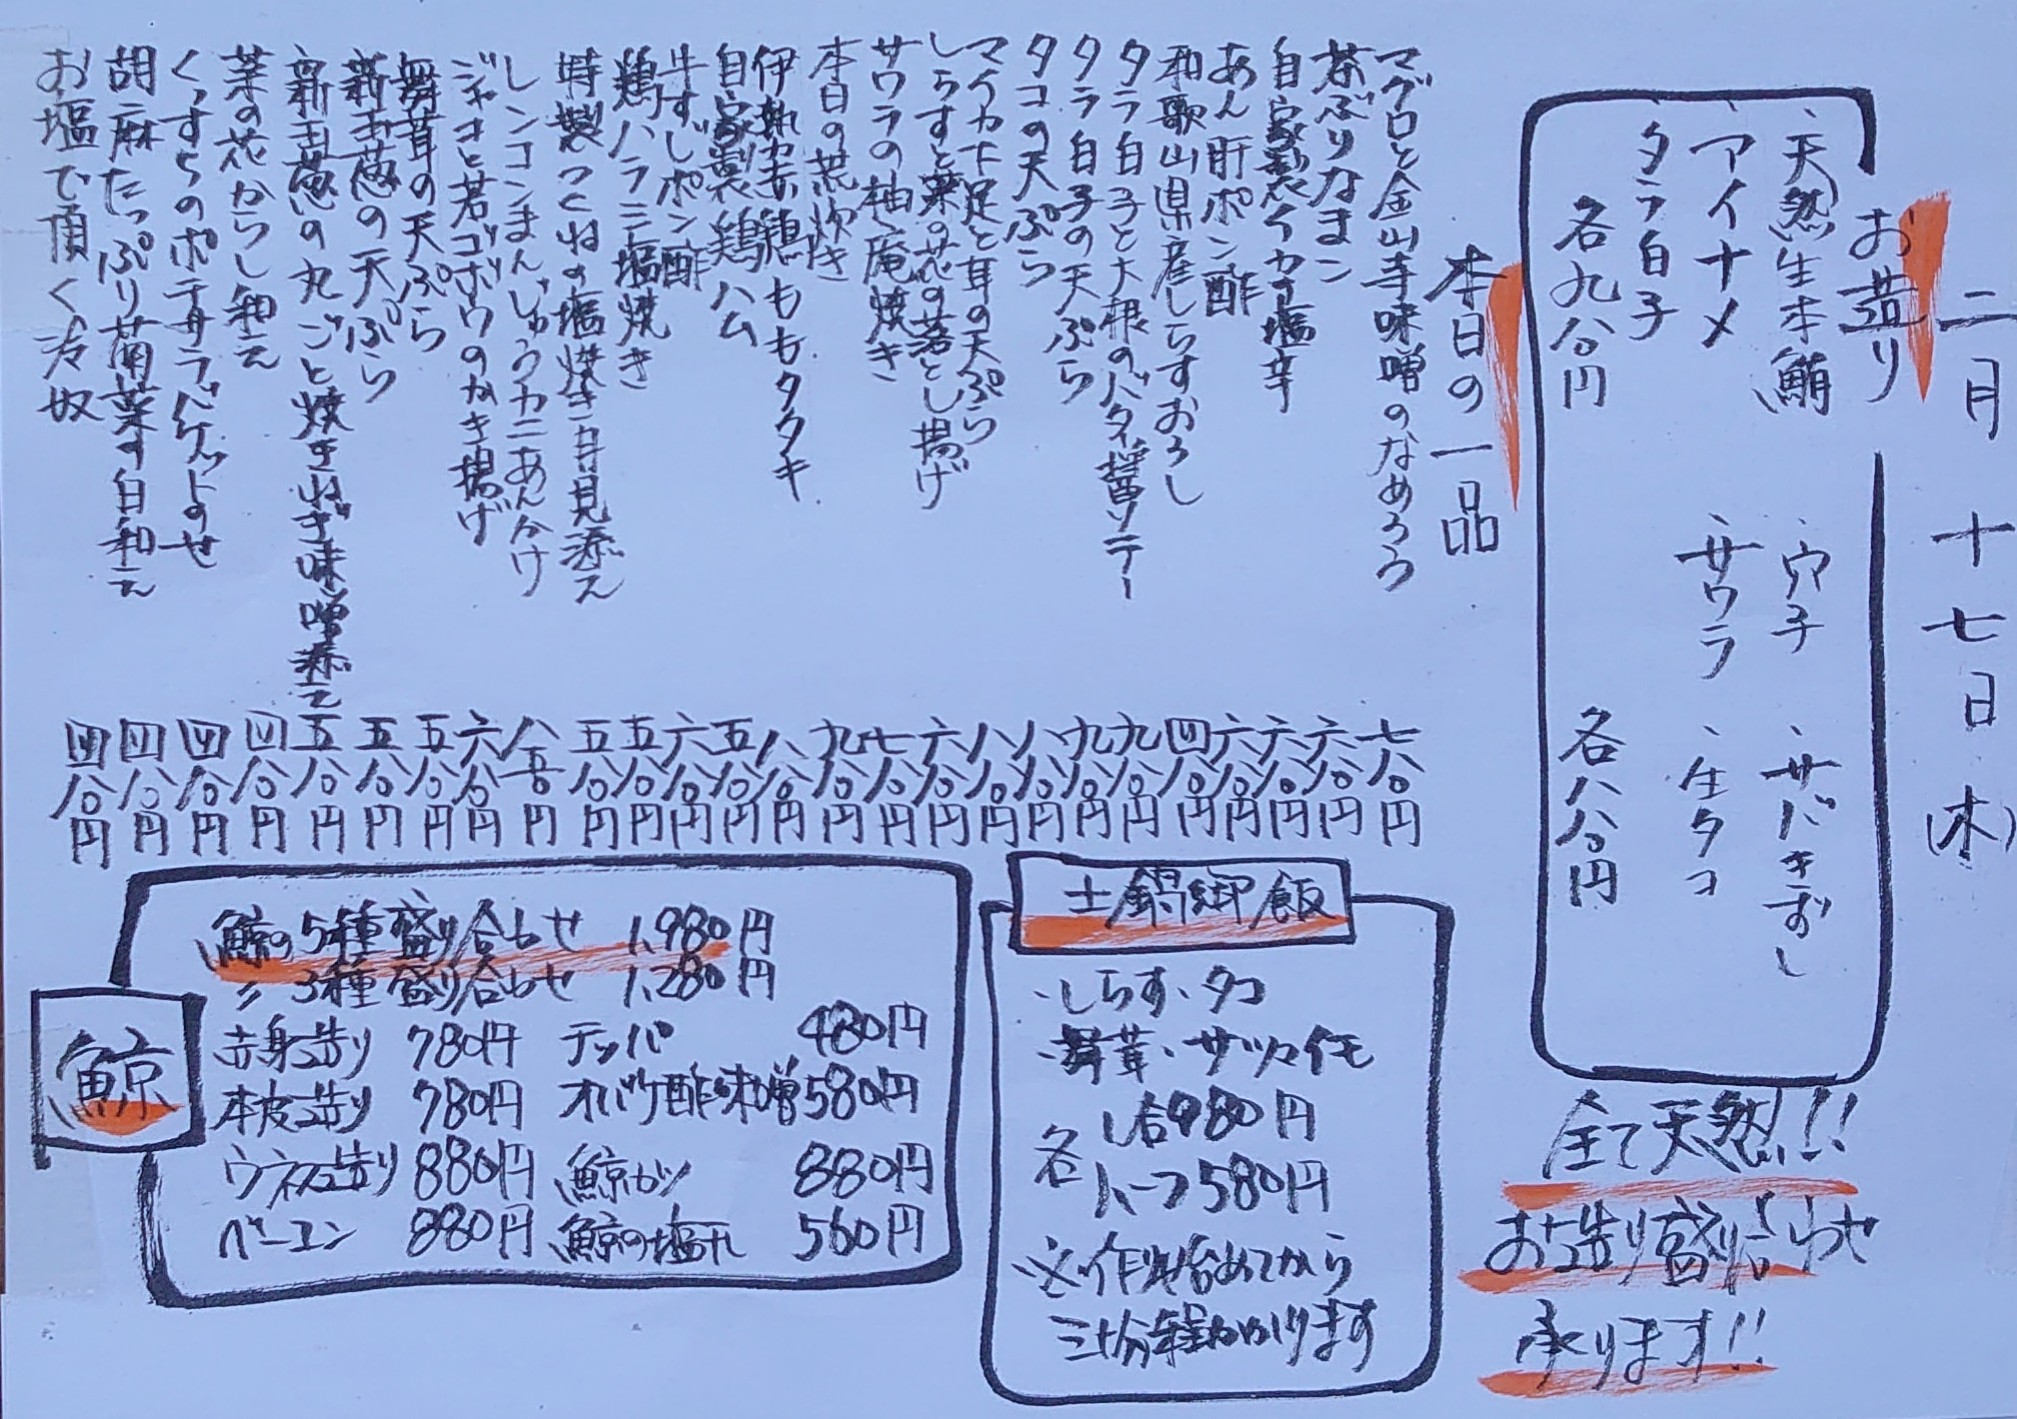 二月十七日(木)
お造り
、天然生本鮪
、アイナメ
、タラ白子
各九八〇円
、穴子
、サバきずし
、サワラ
、生タコ
各八八〇円
全て天然!!
お造り盛り合わせ
承ります!!
本日の一品
マグロと金山寺味噌のなめろう 七八〇円
茶ぶりなまこ 六八〇円
自家製イカの塩辛 六八〇円
あん肝ポン酢 六八〇円
和歌山県産しらすおろし 四八〇円
タラ白子と大根のバター醤油ソテー 九八〇円
タラ白子の天ぷら 九八〇円
タコの天ぷら 八八〇円
マイカ下足と耳の天ぷら 八八〇円
しらすと菜の花の落とし揚げ 六八〇円
サワラの柚庵焼き 七八〇円
本日の荒炊き 九八〇円
伊勢赤鶏ももタタキ 八八〇円
自家製鶏ハム 五八〇円
牛すじポン酢 六八〇円
鶏ハラミ塩焼き 五八〇円
特製つくねの塩焼き 月見添え 五八〇円
レンコンまんじゅうカニあんかけ 八五〇円
ジャコと若ゴボウのかき揚げ 六八〇円
舞茸の天ぷら 五八〇円
新玉葱の天ぷら 五八〇円
新玉葱の丸ごと焼きねぎ味噌添え 五八〇円
菜の花からし和え 四八〇円
くっすらのポテサラバゲットのせ 四八〇円
胡麻たっぷり菊菜の白和え 四八〇円
お塩で頂く冷奴 四八〇円
土鍋御飯
、しらす、タコ
、舞茸、サツマイモ
各
1合980円
ハーフ580円
※作り始めてから
三十分程かかります
鯨
鯨の5種盛り合わせ 1,980円
〃 3種盛り合わせ 1,280円
赤身造り 780円 テッパ 480円
本皮造り 780円 オバケ酢味噌 580円
ウネス造り 880円 鯨カツ 880円
ベーコン 880円 鯨の塩干し 560円